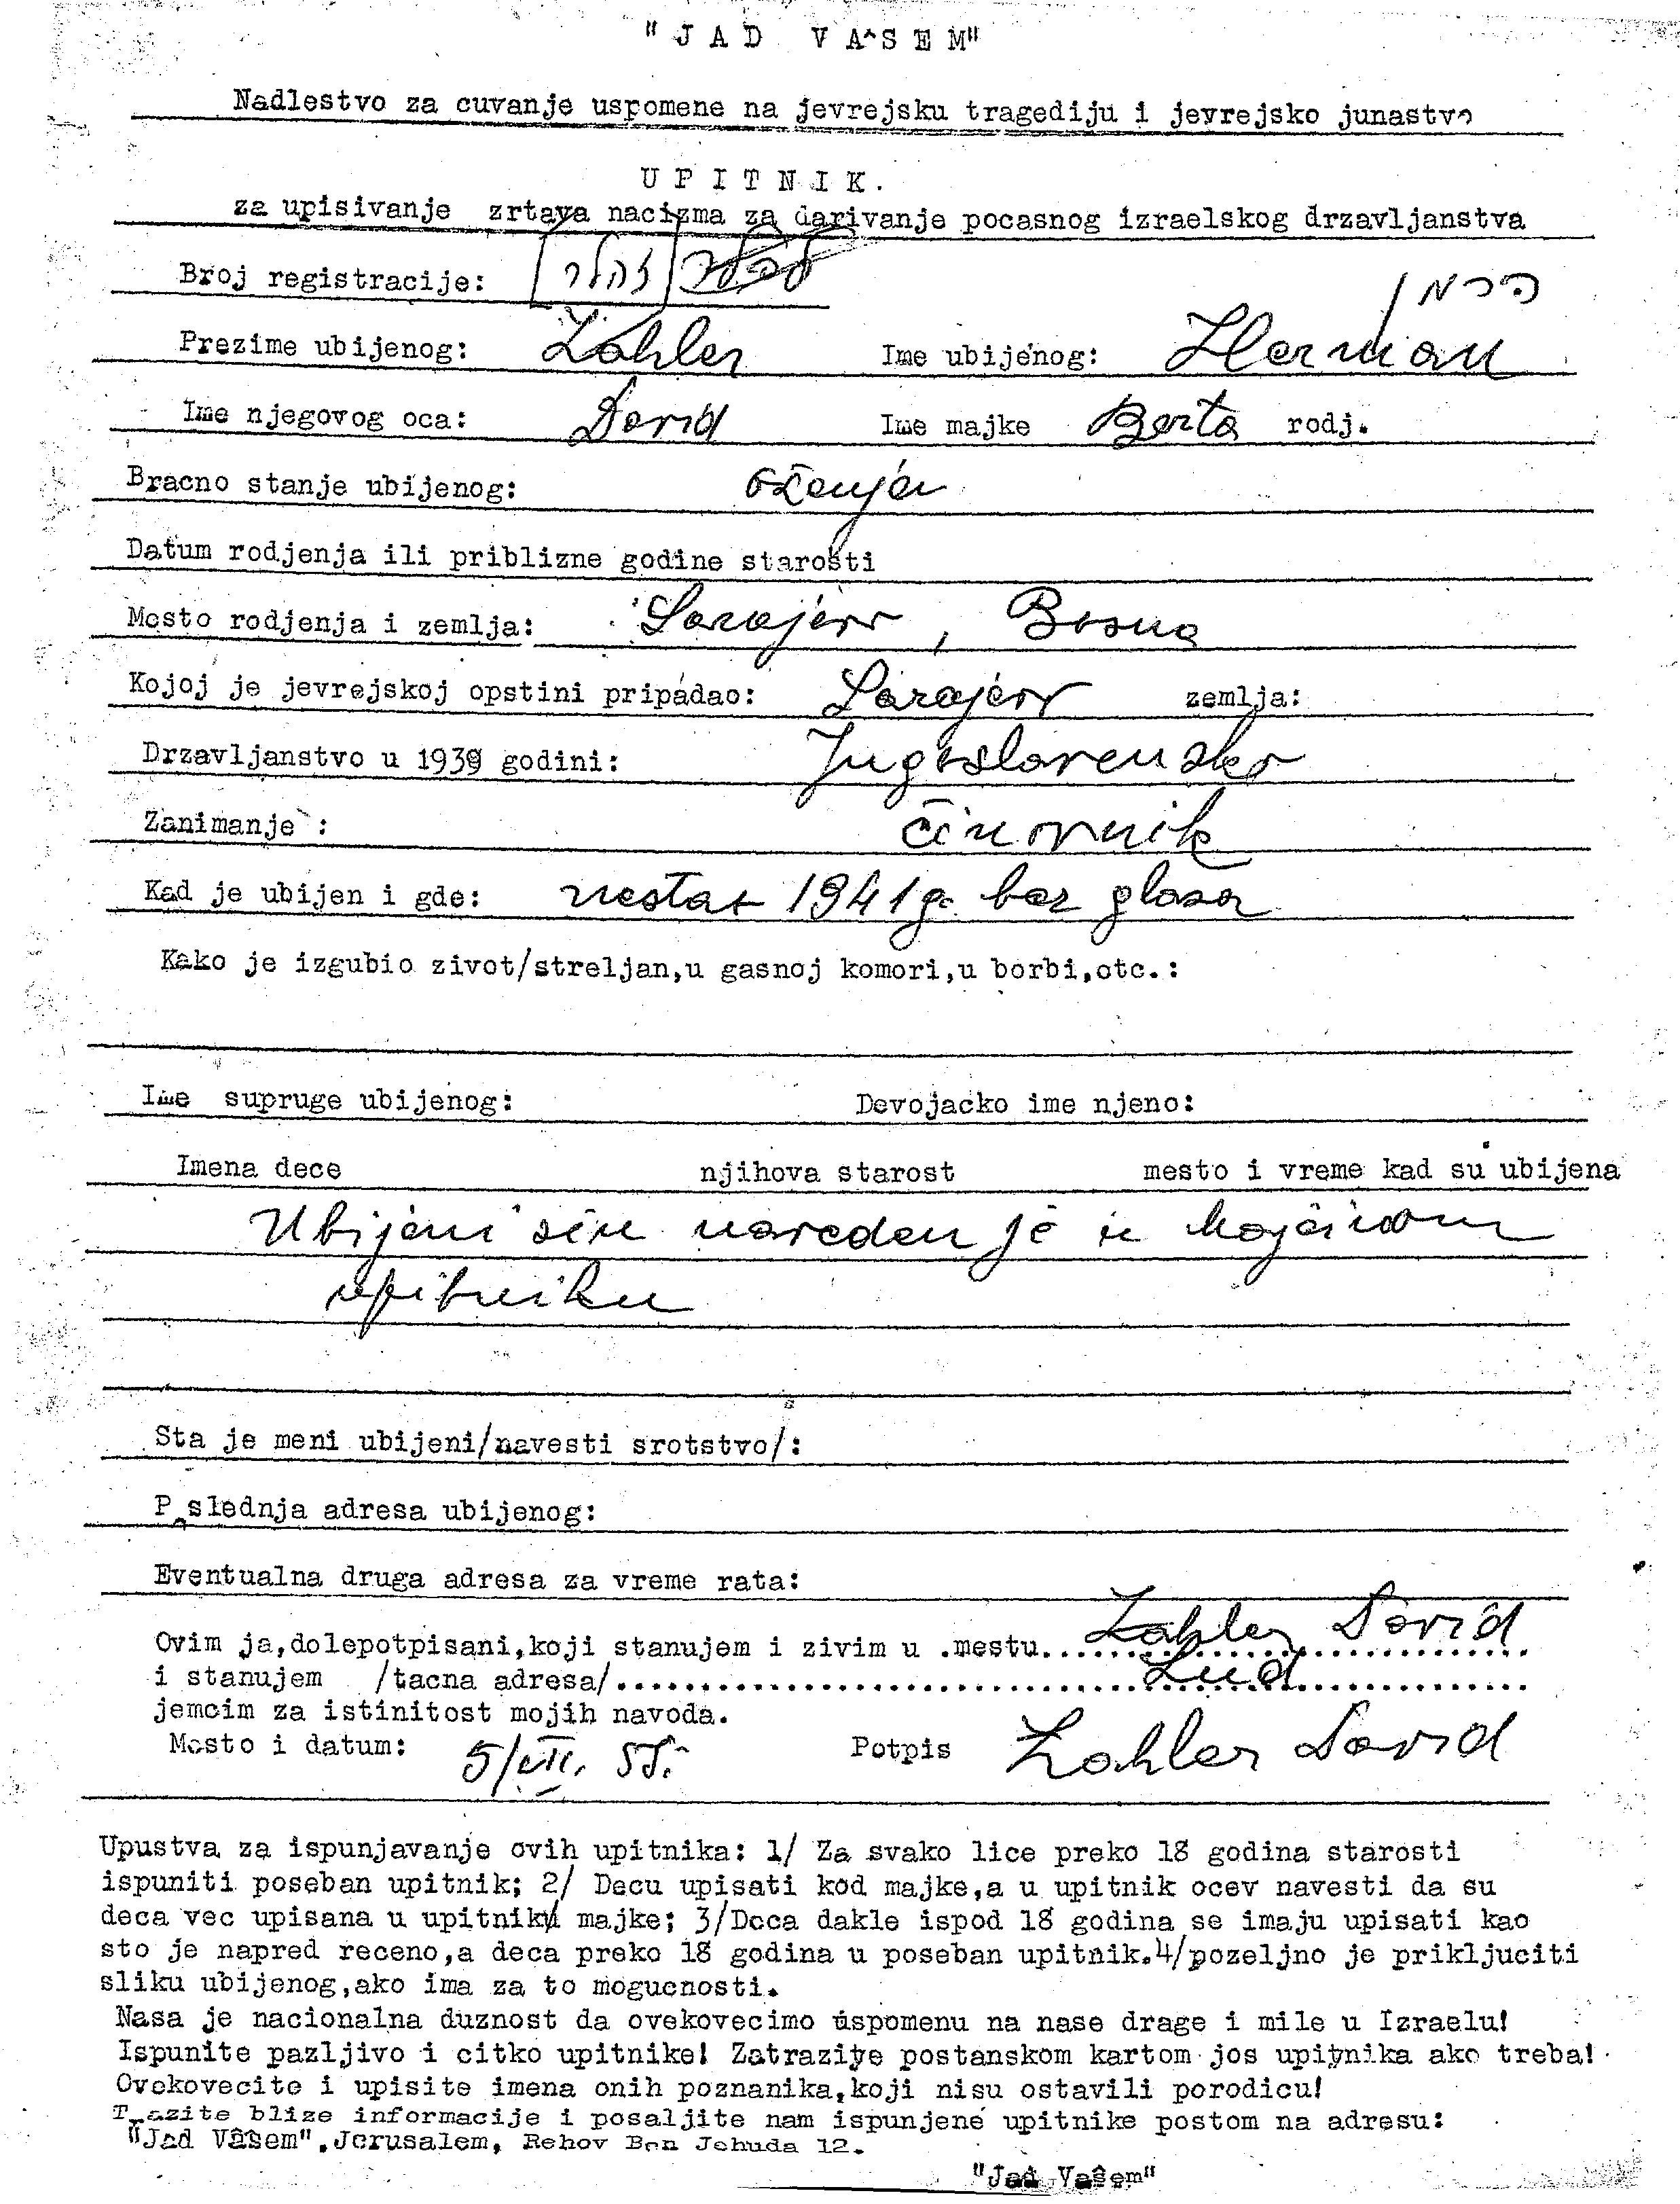 "JAD VA^SEM"
Nadlestvo za cuvanje uspomene na jevrejsku tragediju i jevrejsko junastvo
UPITNIK.
za upisivanje zrtava nacizma za darivanje pocasnog izraelskog drzavljanstva
Broj registracije:
הרמן
Prezime ubijenog: Zahler Ime ubijenog: Herman
Ime njegovog oca: David Ime majke Berta rodj.
Bracno stanje ubijenog: oženjen
Datum rodjenja ili priblizne godine starosti
Mesto rodjenja i zemlja: Sarajevo, Bosna
Kojoj je jevrejskoj opstini pripadao: Sarajevo zemlja:
Drzavljanstvo u 1939 godini: Jugoslavensko
Zanimanje: činovnik
Kad je ubijen i gde: nestao 1941 g. bez glasa
Kako je izgubio zivot/streljan,u gasnoj komori,u borbi,etc.:
Ime supruge ubijenog: Devojacko ime njeno:
Imena dece njihova starost mesto i vreme kad su ubijena
Ubijeni sin naveden je u majčinom
upitniku
Sta je meni ubijeni/navesti srotstvo/:
Poslednja adresa ubijenog:
Eventualna druga adresa za vreme rata:
Ovim ja,dolepotpisani,koji stanujem i zivim u .mestu.....Zahler David
i stanujem /tacna adresa/..........Lud..........
jemcim za istinitost mojih navoda.
Mesto i datum: 5/VII. 55. Potpis Zahler David
Upustva za ispunjavanje ovih upitnika: 1/ Za svako lice preko 18 godina starosti
ispuniti poseban upitnik; 2/ Decu upisati kod majke,a u upitnik ocev navesti da su
deca vec upisana u upitniku majke; 3/Deca dakle ispod 18 godina se imaju upisati kao
sto je napred receno,a deca preko 18 godina u poseban upitnik.4/pozeljno je prikljuciti
sliku ubijenog,ako ima za to mogucnosti.
Nasa je nacionalna duznost da ovekovecimo uspomenu na nase drage i mile u Izraelu!
Ispunite pazljivo i citko upitnike! Zatrazite postanskom kartom jos upitnika ako treba!
Ovekovecite i upisite imena onih poznanika,koji nisu ostavili porodicu!
Trazite blize informacije i posaljite nam ispunjene upitnike postom na adresu:
"Jad Vašem",Jerusalem, Rehov Ben Jehuda 12.
"Jad Vašem"